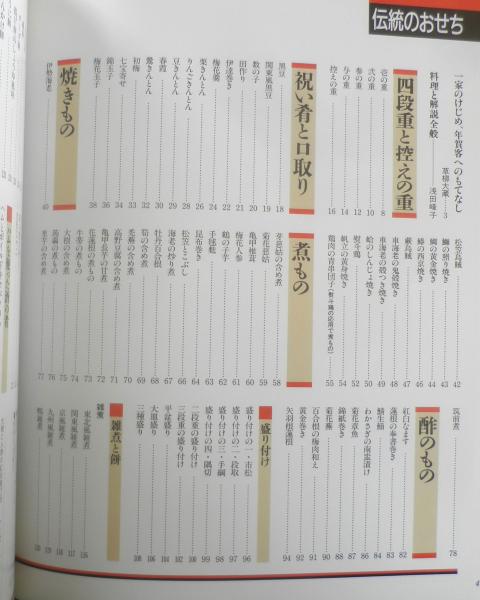 伝統のおせち
一家のけじめ、年賀客へのもてなし
草柳大蔵…3
料理と解説全般 浅田峰子
四段重と控えの重
壱の重…8
弐の重…10
参の重…12
与の重…14
控えの重…16
祝い肴と口取り
黒豆…18
関東風黒豆…19
数の子…20
田作り…21
伊達巻き…22
梅花羹…24
栗きんとん…26
りんごきんとん…28
豆きんとん…29
春霞…30
鶯きんとん…31
初梅…32
七宝寄せ…34
錦玉子…36
梅花玉子…38
焼きもの
伊勢海老…40
松笠烏賊…42
鰤の照り焼き…43
鯛の黄金焼き…44
鰆の西京焼き…46
蕨烏賊…47
車海老の鬼殻焼き…48
車海老の殻つき焼き…49
蛤のしんじょ焼き…50
熨斗鶏…52
帆立の黄身焼き…54
鶏肉の青串団子(熨斗鶏の応用で煮もの)…55
煮もの
芽慈姑の含め煮…58
菊花慈姑…59
亀甲椎茸…60
梅花人参…61
鶴の子芋…62
手毬麩…63
昆布巻き…64
松笠とこぶし…66
海老の炒り煮…67
牡丹百合根…68
筍の含め煮…69
蕪の含め煮…70
高野豆腐の含め煮…71
亀甲長芋の甘煮…72
花蓮根の煮もの…73
牛蒡の煮もの…74
大根の含め煮…75
蒟蒻の煮もの…76
里芋の含め煮…77
筑前煮…78
酢のもの
紅白なます…82
蓮根の奉書巻き…83
鯖生鮨…84
わかさぎの南蛮漬け…86
菊花章魚…87
錦紙巻き…88
菊花蕪…90
百合根の梅肉和え…91
黄金巻き…92
矢羽根蓮根…94
盛り付け
盛り付けの一・市松…96
盛り付けの二・段取…97
盛り付けの三・手綱…98
盛り付けの四・隅切…99
二段重の盛り付け…100
三段重の盛り付け…102
平盆盛り…104
大皿盛り…106
三種盛り…108
雑煮と餅
雑煮
東北風雑煮…116
関東風雑煮…117
京風雑煮…118
九州風雑煮…119
鴨雑煮…120
4